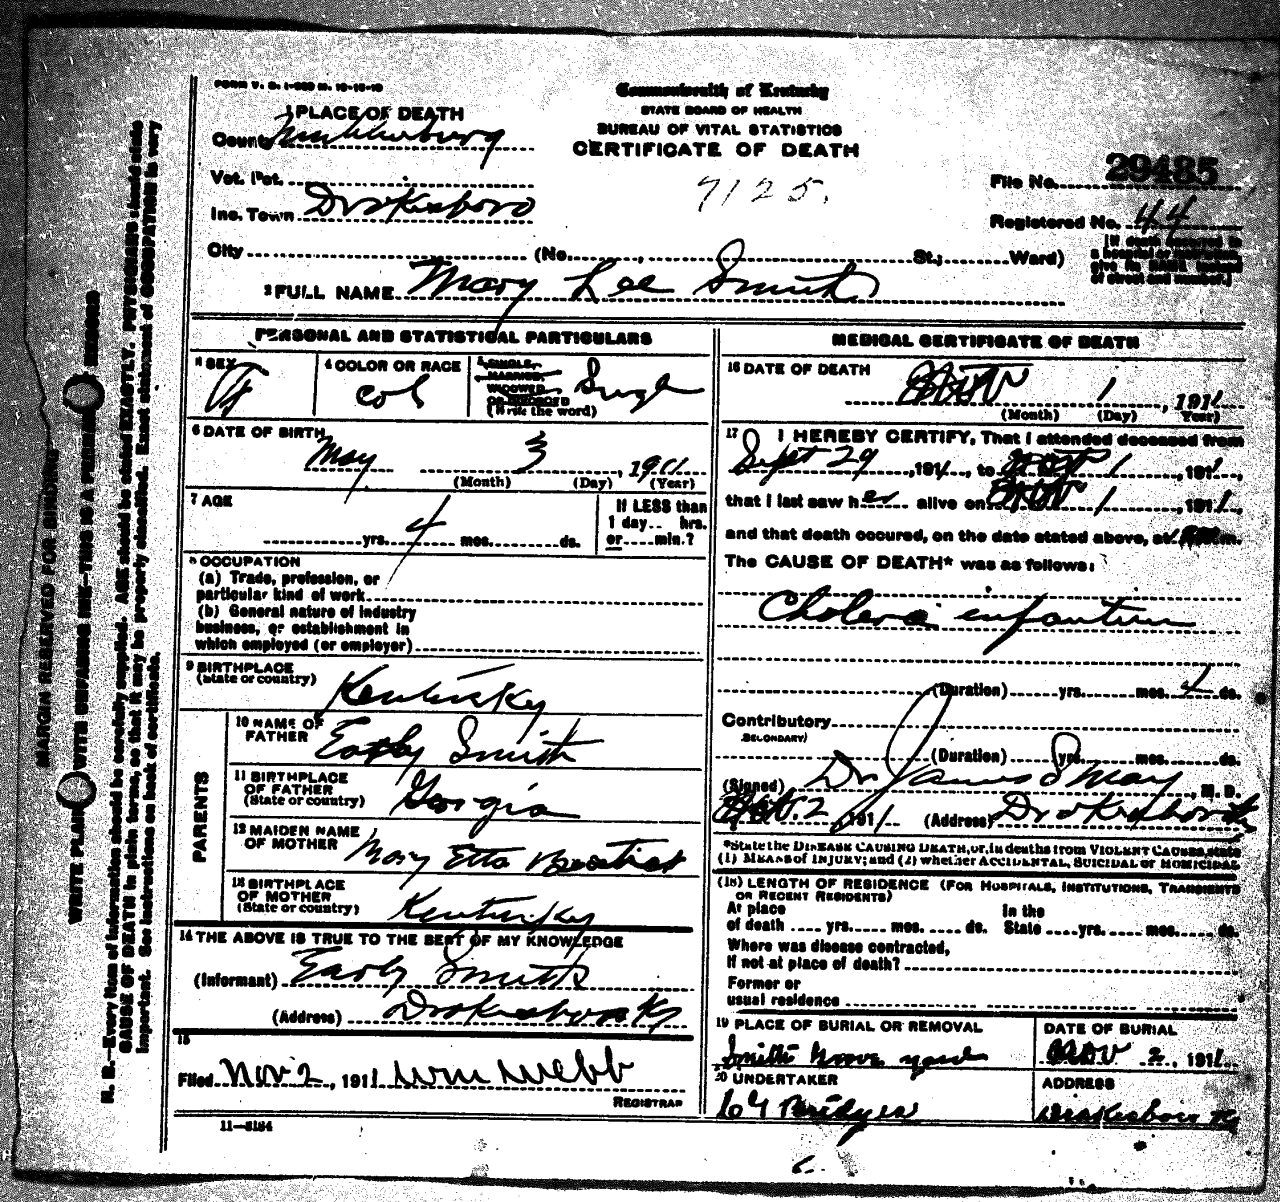 FORM V. S. 1-
Commonwealth of Kentucky
STATE BOARD OF HEALTH
BUREAU OF VITAL STATISTICS
CERTIFICATE OF DEATH
1 PLACE OF DEATH
County Muhlenburg
Vot. Pct.
Inc. Town Drakesboro
City (No. , St.; Ward)
7125.
File No. 29485
Registered No. 44
[If death occurred in
a hospital or institution,
give its NAME instead
of street and number.]
2 FULL NAME Mary Lee Smith
PERSONAL AND STATISTICAL PARTICULARS
3 SEX F
4 COLOR OR RACE col
5 SINGLE,
MARRIED,
WIDOWED
OR DIVORCED
(Write the word) Single
6 DATE OF BIRTH
May 3, 1911
(Month) (Day) (Year)
7 AGE
yrs. 4 mos. ds.
If LESS than
1 day.. hrs.
or....min.?
8 OCCUPATION
(a) Trade, profession, or
particular kind of work
(b) General nature of industry
business, or establishment in
which employed (or employer)
9 BIRTHPLACE
(State or country) Kentucky
PARENTS
10 NAME OF
FATHER Early Smith
11 BIRTHPLACE
OF FATHER
(State or country) Georgia
12 MAIDEN NAME
OF MOTHER Mary Etta
13 BIRTHPLACE
OF MOTHER
(State or country) Kentucky
14 THE ABOVE IS TRUE TO THE BEST OF MY KNOWLEDGE
(Informant) Early Smith
(Address) Drakesboro Ky
15
Filed Nov 2, 1911 Wm Webb
REGISTRAR
11—5184
MEDICAL CERTIFICATE OF DEATH
16 DATE OF DEATH
1, 1911
(Month) (Day) Year)
17 I HEREBY CERTIFY, That I attended deceased from
Sept 29, 1911, to 1, 1911,
that I last saw her alive on 1, 1911,
and that death occured, on the date stated above, at m.
The CAUSE OF DEATH* was as follows:
Cholera infantum
(Duration) yrs. mos. ds.
Contributory
SECONDARY)
(Duration) yrs. mos. ds.
(Signed) Dr James May, M. D.
2, 1911 (Address) Drakesboro
*State the DISEASE CAUSING DEATH, or, in deaths from VIOLENT CAUSES, state
(1) MEANS of INJURY; and (2) whether ACCIDENTAL, SUICIDAL or HOMICIDAL
(18) LENGTH OF RESIDENCE (FOR HOSPITALS, INSTITUTIONS, TRANSIENTS
OR RECENT RESIDENTS)
At place In the
of death .... yrs. mos. .... ds. State ....yrs. mos. ds.
Where was disease contracted,
If not at place of death?
Former or
usual residence
19 PLACE OF BURIAL OR REMOVAL
Smith Grove yard
DATE OF BURIAL
Nov 2, 1911
20 UNDERTAKER
Bridges
ADDRESS
Drakesboro Ky
MARGIN RESERVED FOR BINDING
WRITE PLAINLY WITH UNFADING INK—THIS IS A PERMANENT RECORD
N. B.—Every item of information should be carefully supplied. AGE should be stated EXACTLY. PHYSICIANS should state
CAUSE OF DEATH in plain terms, so that it may be properly classified. Exact statement of OCCUPATION is very
important. See instructions on back of certificate.